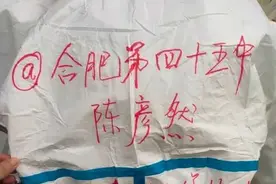 @合肥第四十五中
陈彦然